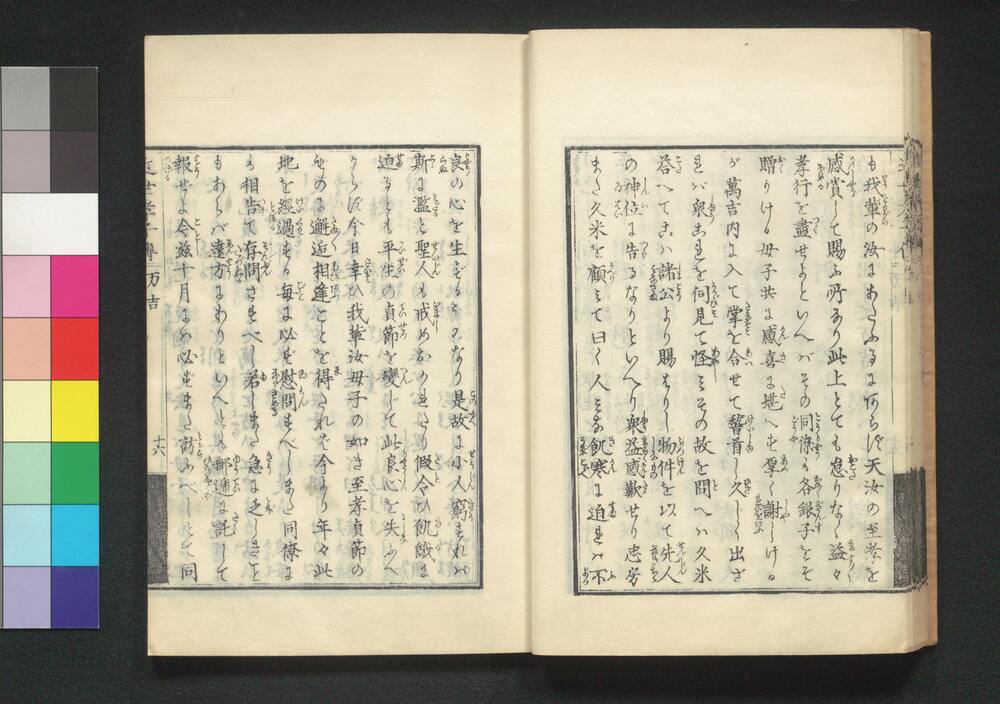 も我輩の汝にあたふるにあらず天汝の至孝を
感賞して賜ふ所なり此上とても怠りなく益々
孝行を盡せよといへバその同僚も各銀子をそ
贈りける母子共に感喜に堪へず厚く謝しける
が萬吉内に入て掌を合せて稽首し久しく出ざ
れバ衆これを伺見て怪ミその故を問へバ久米
答へてこハ諸公より賜はりし物件を以て先人
の神位に告るなりといへり衆益感歎せり忠房
また久米を顧ミて曰く人ミな飢寒に迫れバ不
良の心を生ずるものなり是故に小人窮すれバ
斯に濫と聖人も戒めおかれたり假令ひ飢餓に
迫るとも平生の貞節を變じて此良心を失ふべ
からず今日幸ひ我輩汝母子の如き至孝貞節の
ものに邂逅相逢ことを得たれバ今より年々此
地を經過する毎に必ず慰問すべしまた同僚に
も相告て存問さすべし若しまた急に乏しきこと
もあらバ遠方にありといへども郵逓に託して
報せよ今茲十月にハ必ずまた訪ふべしとて同
近世孝子傳 万吉
十六